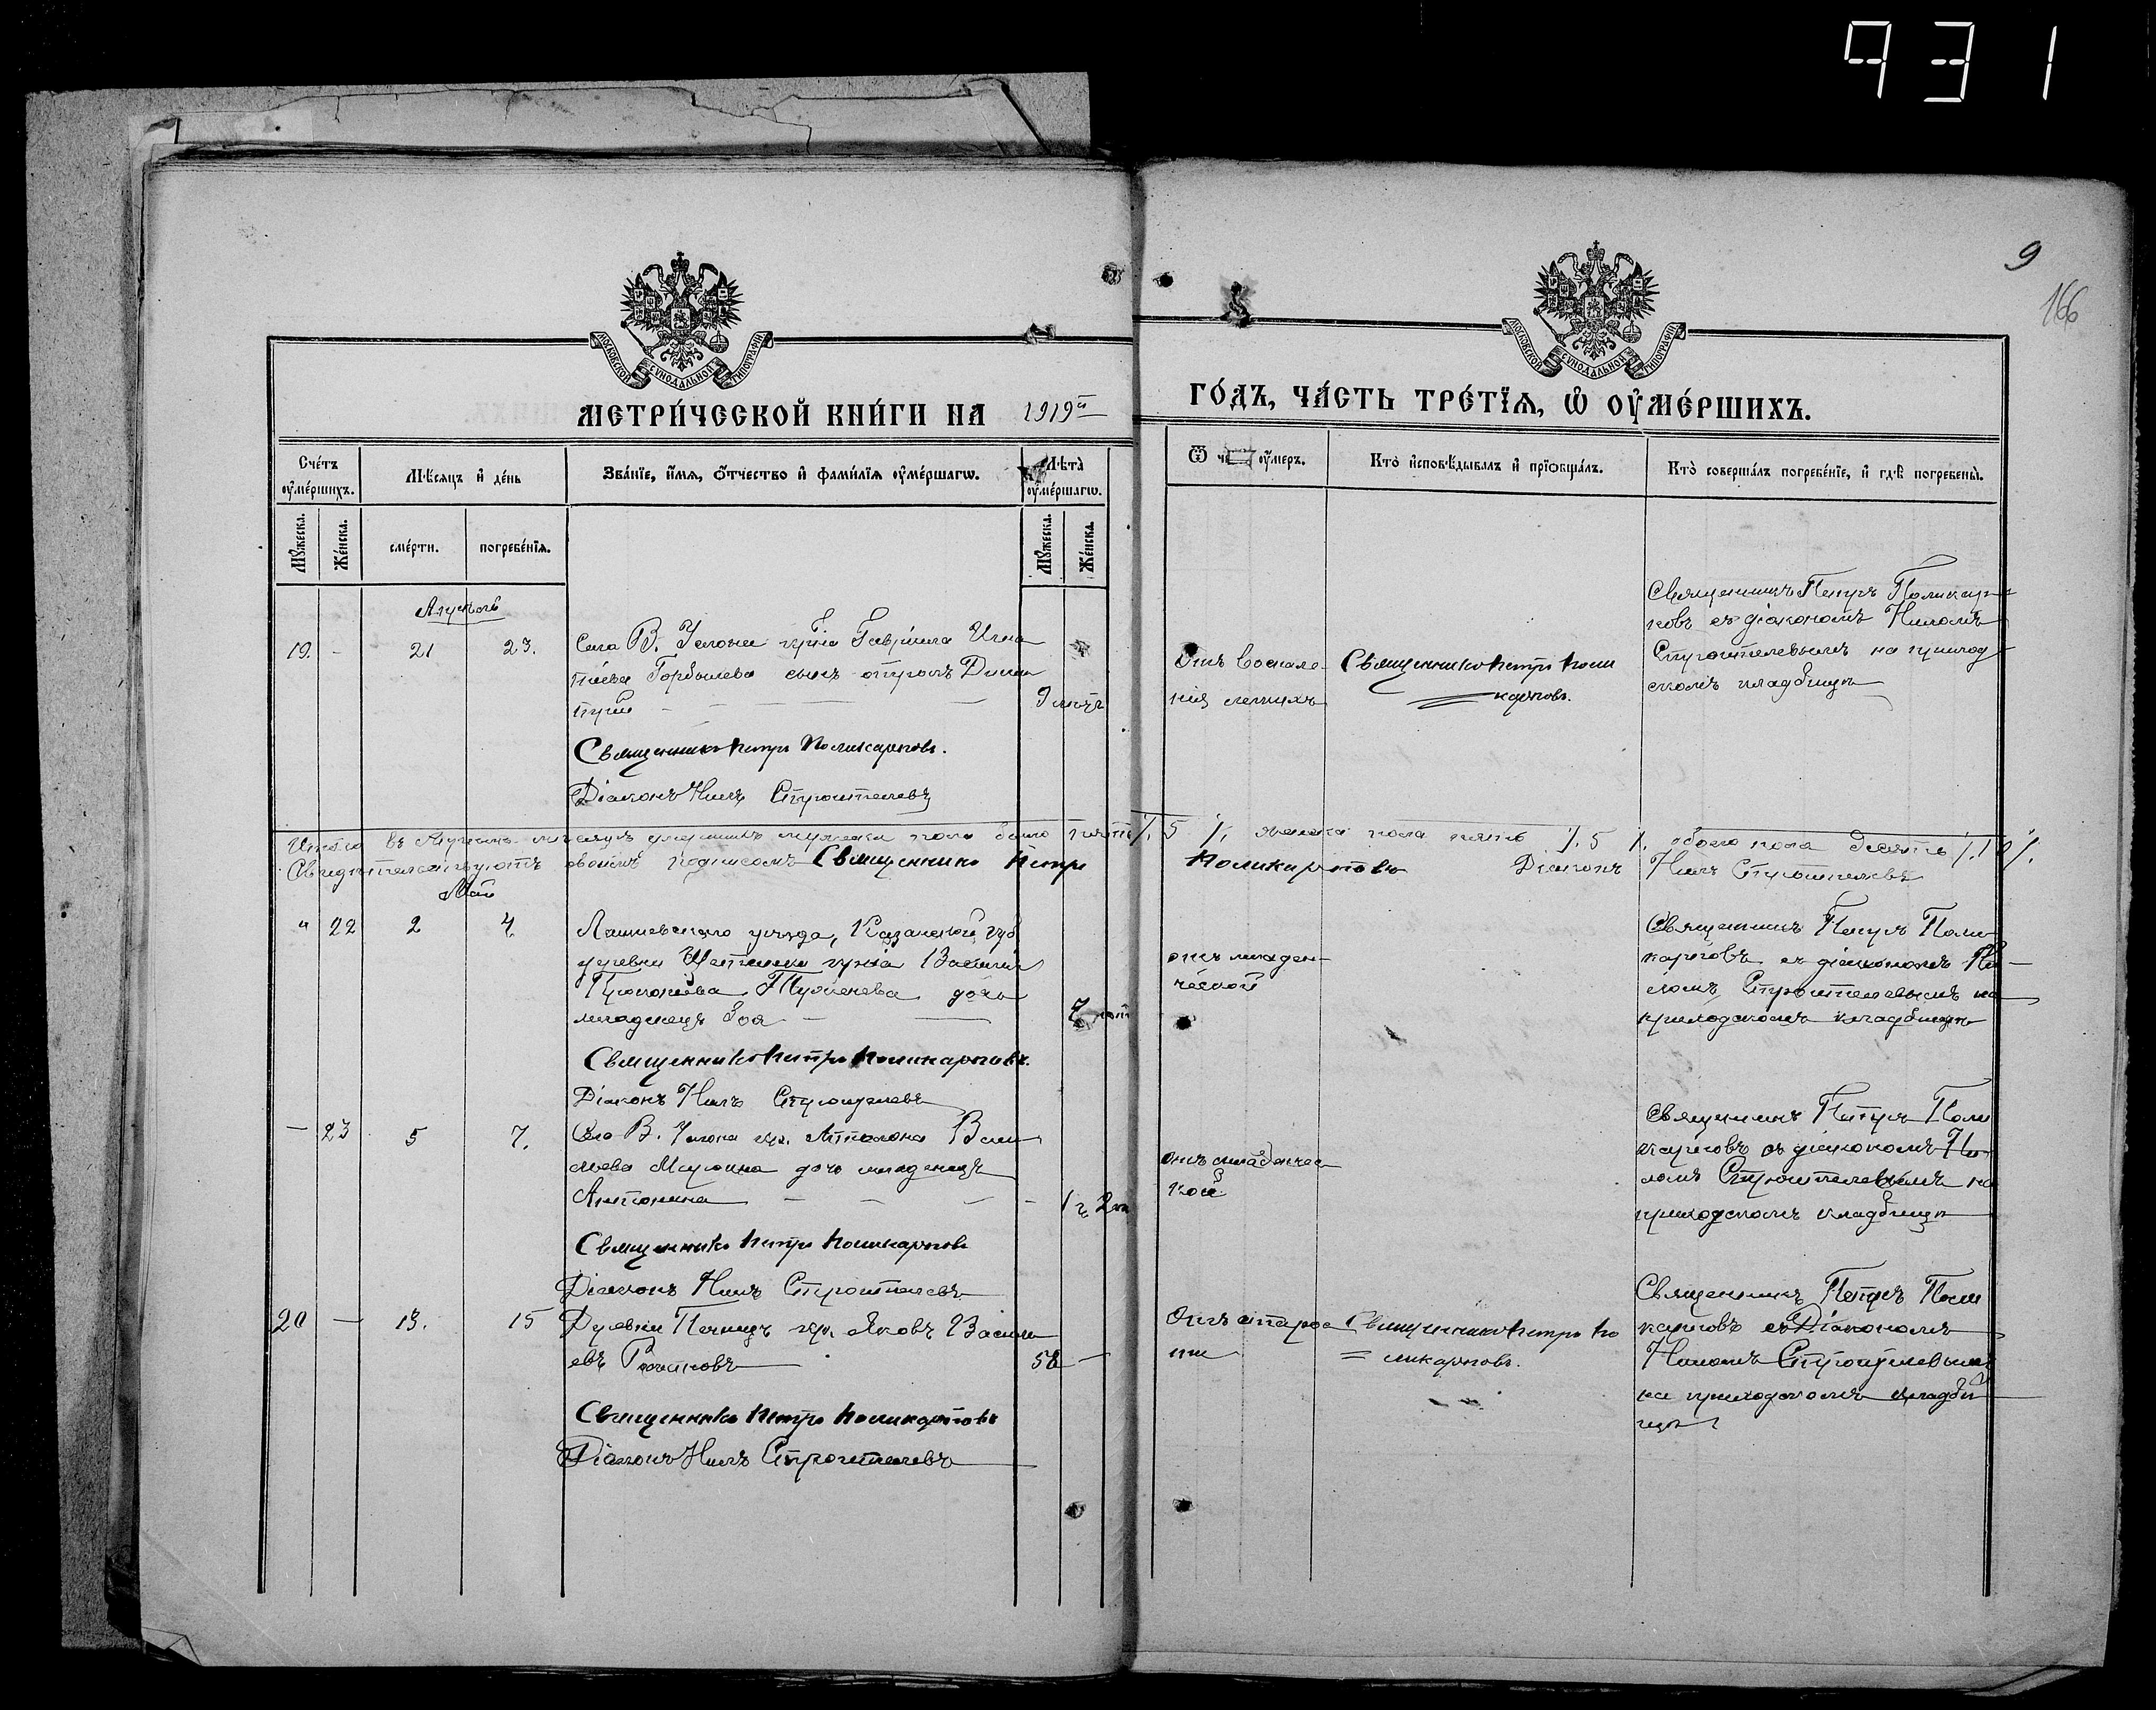 931
9
166
МОСКОВСКОЙ СѴНОДАЛЬНОЙ ТИПОГРАФІИ
МОСКОВСКОЙ СѴНОДАЛЬНОЙ ТИПОГРАФІИ
МЕТРИ́ЧЕСКОЙ КНИ́ГИ НА 1919й
ГО́ДЪ, ЧА́СТЬ ТРЕ́ТІѦ, Ѡ҆ ОУ҆МЕ́РШИХЪ.
Сче́тъ оу҆ме́ршихъ.
Мѣ́сяцъ и҆ де́нь
Зва́нїе, и҆́мѧ, ѻ҆́тчество и҆ фами́лїѧ оу҆ме́ршагѡ.
Лѣ́та оу҆ме́ршагѡ.
Ѿ оу҆́меръ.
Кто̀ и҆сповѣ́дывалъ и҆ прїѡбща́лъ.
Кто̀ соверша́лъ погребе́нїе, и҆ гдѣ̀ погребены̀.
Мꙋ́жеска.
Же́нска.
сме́рти.
погребе́нїѧ.
Мꙋ́жеска.
Же́нска.
19. - 21 23.
Села В. Услона Гавріила Игна
тіева Горбылева сынъ отрокъ Дими
трій
9 лѣтъ
Отъ воспале
нія легкихъ
Священникъ Петръ Поли
карповъ.
Священникъ Петръ Поликар
повъ съ діакономъ Ниломъ
Строителевымъ на приход
скомъ кладбищѣ
Священникъ Петръ Поликарповъ.
Діаконъ Нилъ Строителевъ
Итого въ мѣсяцѣ умершихъ мужеска пола было пять /. 5 /. женска пола пять /. 5 /. обоего пола десять /. 10 /.
Свидѣтельствуютъ своимъ подписомъ Священникъ Петръ Поликарповъ Діаконъ Нилъ Строителевъ
Май
" 22 2 4
Лаишевскаго уѣзда, Казанской губ
деревни Василія
дочь
младенецъ Зоя
7
отъ младен
ческой
Священникъ Петръ Поли
карповъ съ діакономъ Ни
ломъ Строителевымъ на
приходскомъ кладбищѣ
Священникъ Петръ Поликарповъ.
Діаконъ Нилъ Строителевъ
— 23 5 7.
Села В. Услона гр. Васи
льева дочь младенецъ
Антонина
1 г. 2
отъ младенчес
кой
Священникъ Петръ Поли
карповъ съ діакономъ Ни
ломъ Строителевымъ на
приходскомъ кладбищѣ
Священникъ Петръ Поликарповъ
Діаконъ Нилъ Строителевъ
20 — 13. 15
Деревни Печищъ гр. Яковъ Василь
евъ
58 —
Отъ старос
ти
Священникъ Петръ По
ликарповъ.
Священникъ Петръ Поли
карповъ съ Діакономъ
Ниломъ Строителевымъ
на приходскомъ кладби
щѣ
Священникъ Петръ Поликарповъ
Діаконъ Нилъ Строителевъ